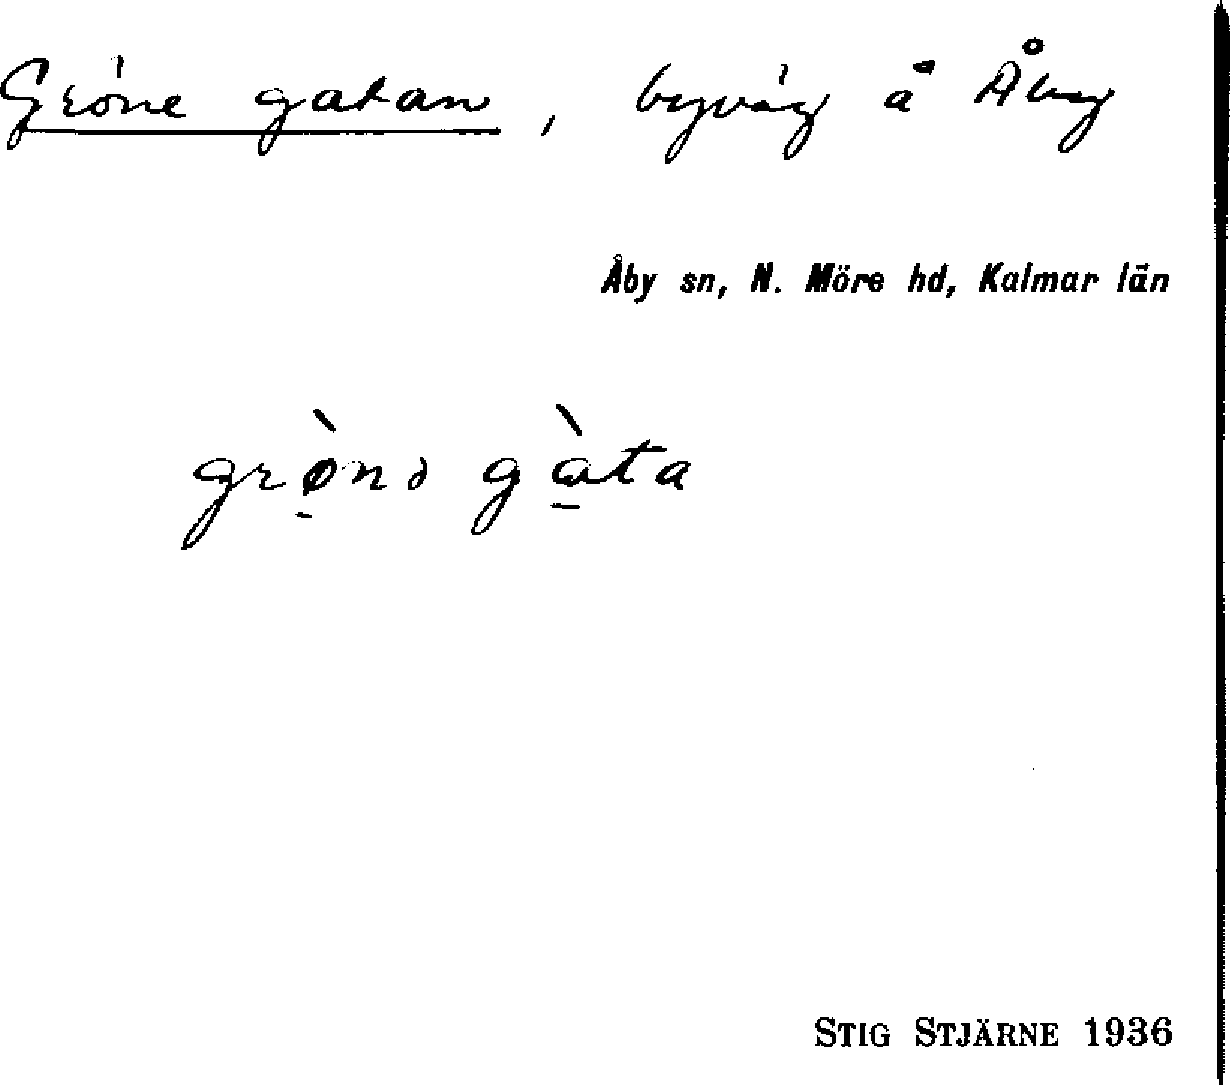 Gröne gatan, byväg å Åby
Åby sn, N. Möre hd, Kalmar län
grø̠̀nə gɑ̠̀ta
STIG STJÄRNE 1936